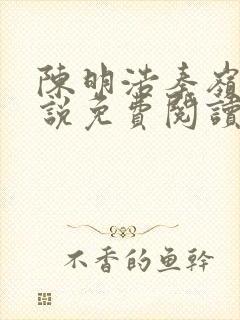 陳明浩秦嶺
說免費閱讀
不香的鱼幹